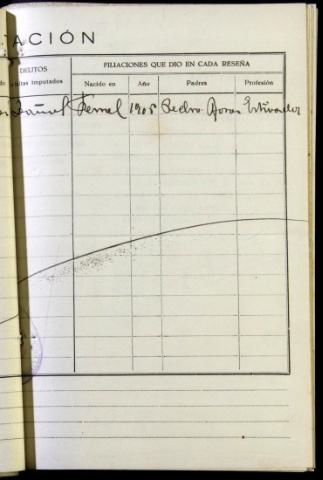 TACIÓN
DELITOS
o faltas imputados
FILIACIONES QUE DIO EN CADA RESEÑA
Nacido en
Año
Padres
Profesión
Ferrol 1905 Pedro Estivador